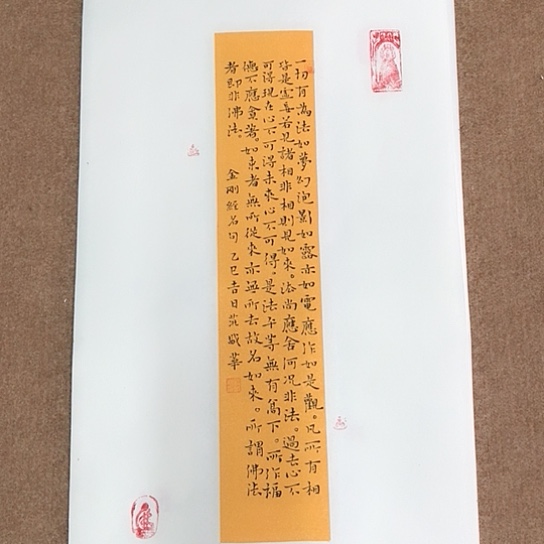 一切有為法如夢幻泡影如露亦如電應作如是觀。凡所有相
皆是虛妄若見諸相非相則見如來。法尚應舍何況非法。過去心不
可得現在心不可得未來心不可得。是法平等無有高下。所作福
德不應貪著。如來者無所從來亦無所去故名如來。所謂佛法
者即非佛法。
金剛經名句 乙巳吉日 華